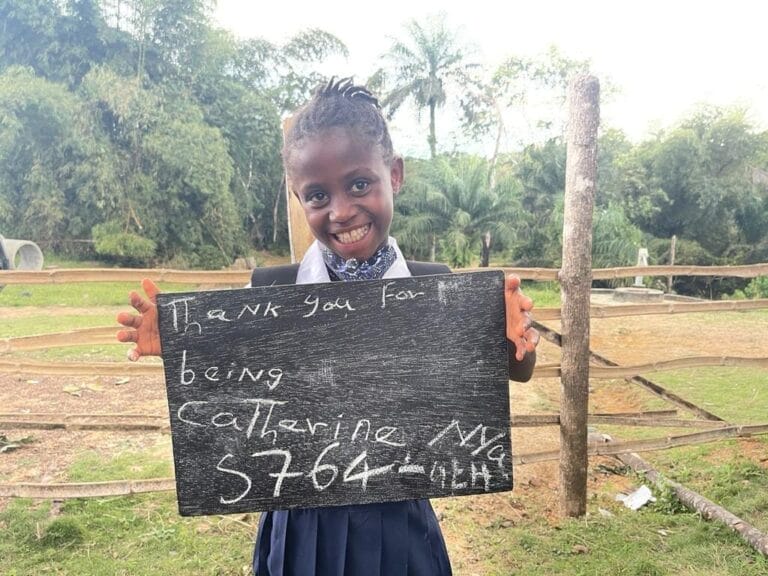 Thank you for
being
Catherine NYa
S764-4tH